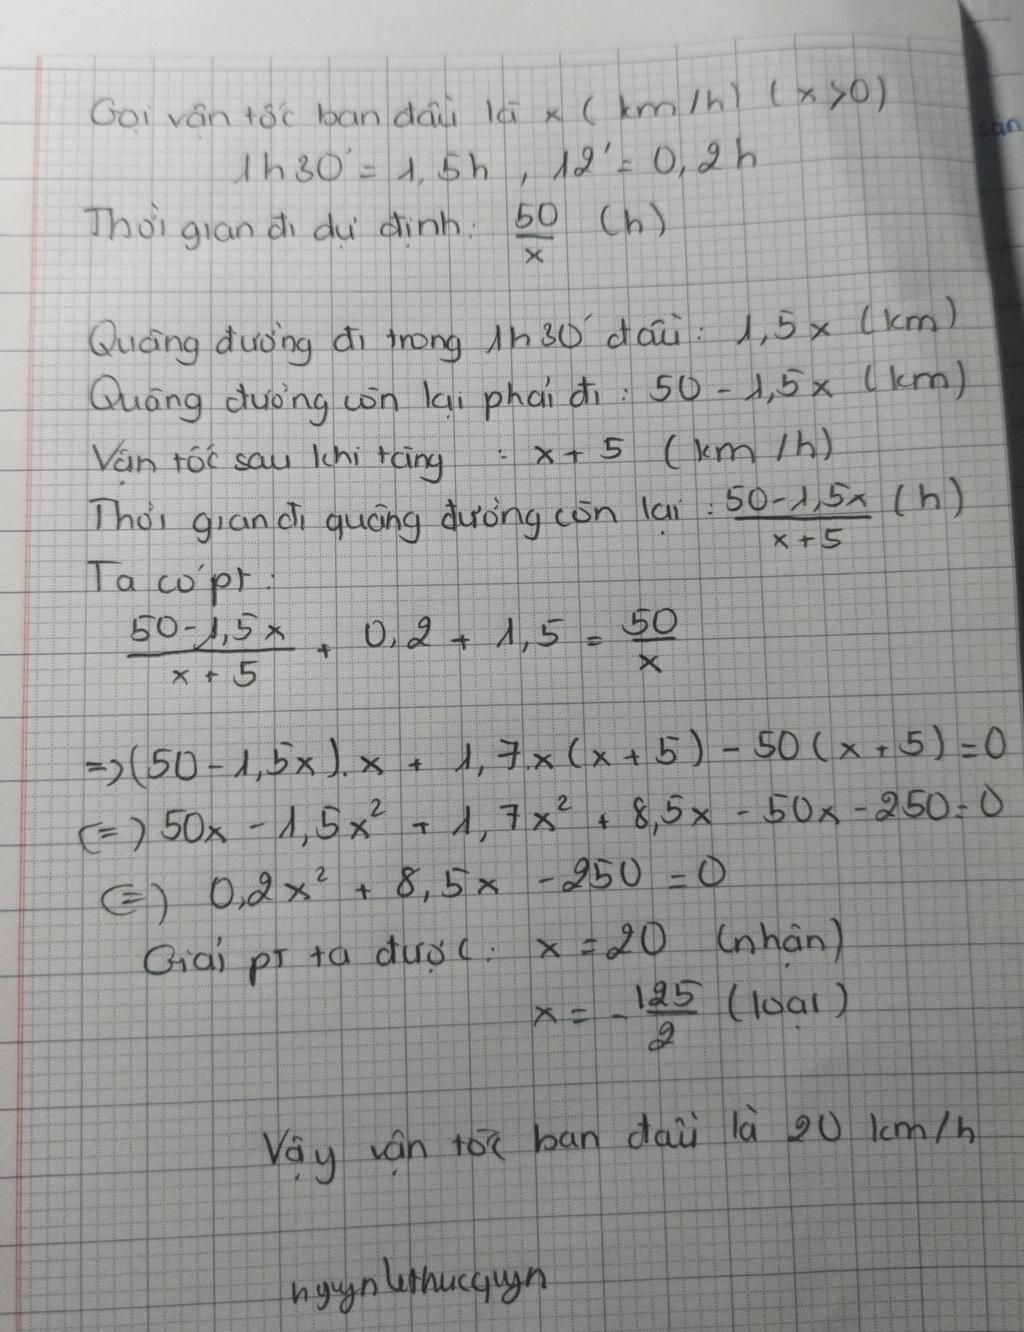 Gọi vận tốc ban đầu là x (km/h) (x>0)
1h30' = 1,5h , 12' = 0,2h
Thời gian đi dự định: 50/x (h)
Quãng đường đi trong 1h30' đầu: 1,5x (km)
Quãng đường còn lại phải đi : 50 - 1,5x (km)
Vận tốc sau khi tăng : x + 5 (km/h)
Thời gian đi quãng đường còn lại : (50-1,5x)/(x+5) (h)
Ta có pt :
(50-1,5x)/(x+5) + 0,2 + 1,5 = 50/x
=> (50-1,5x).x + 1,7.x(x+5) - 50(x+5) = 0
(=) 50x - 1,5x² + 1,7x² + 8,5x - 50x - 250 = 0
(=) 0,2x² + 8,5x - 250 = 0
Giải pt ta được: x = 20 (nhận)
x = -125/2 (loại)
Vậy vận tốc ban đầu là 20 km/h
nguynlethucquyn